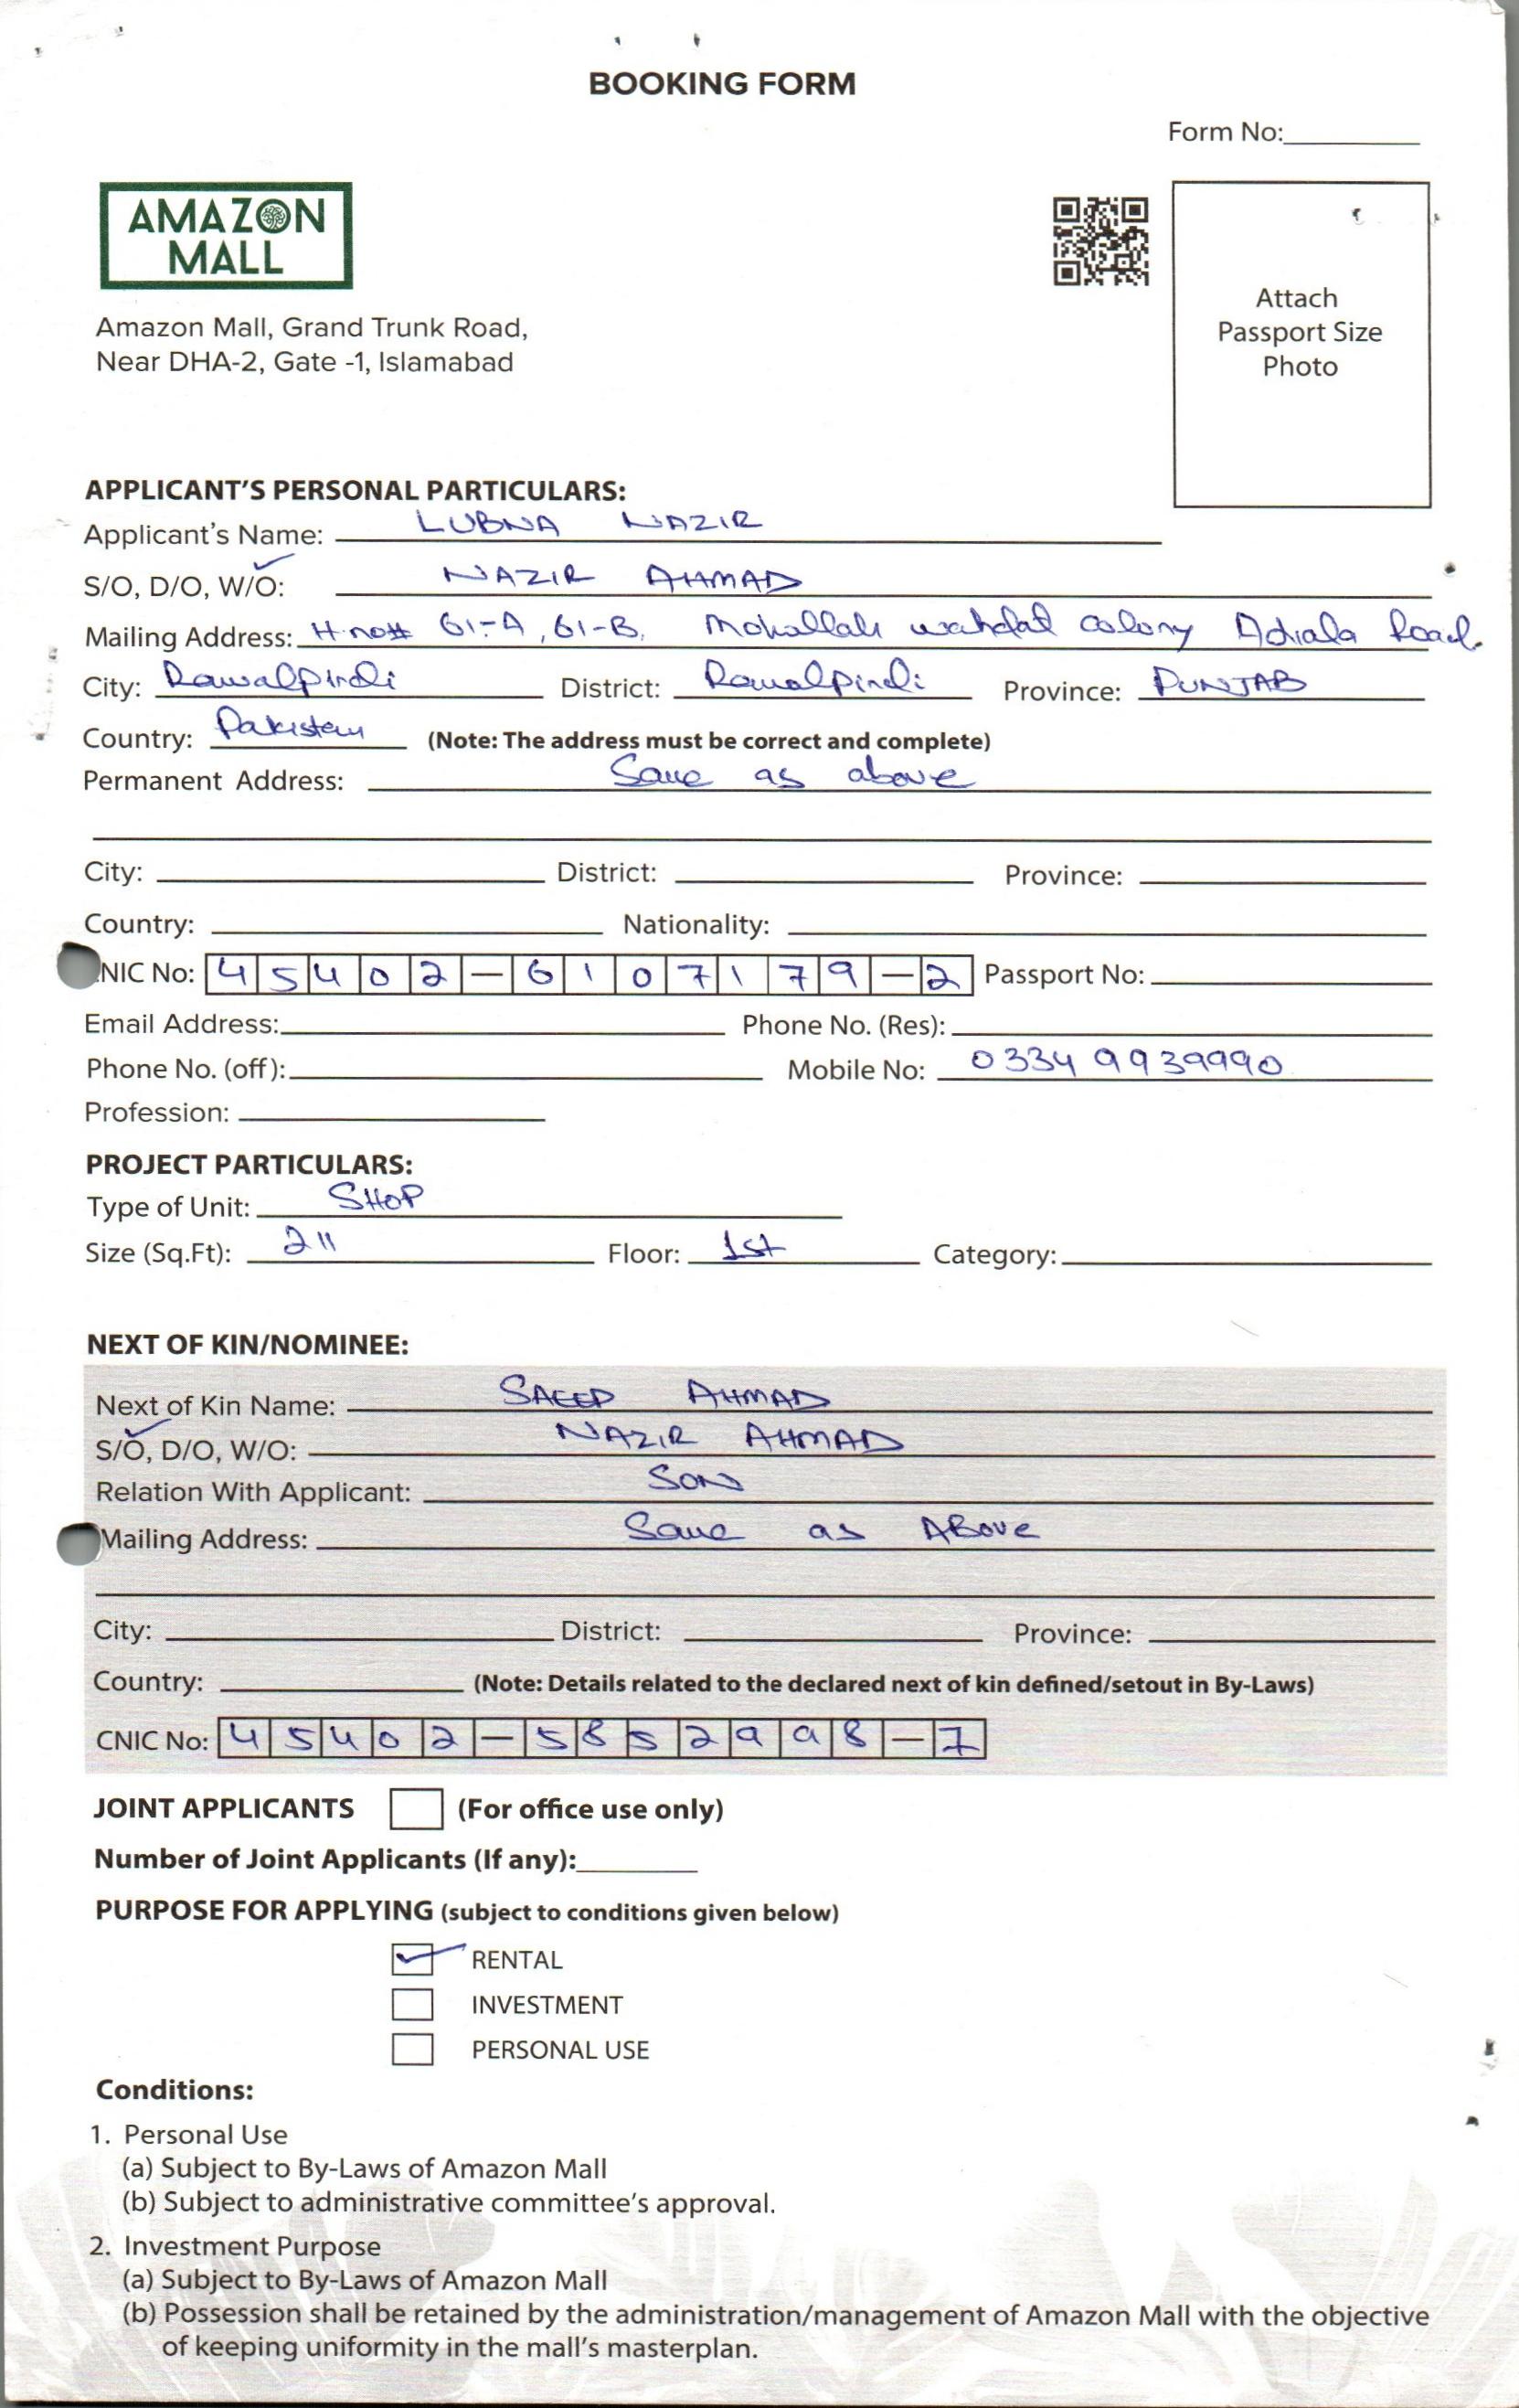 BOOKING FORM
Form No:
AMAZON
MALL
Attach
Passport Size
Photo
Amazon Mall, Grand Trunk Road,
Near DHA-2, Gate -1, Islamabad
APPLICANT'S PERSONAL PARTICULARS:
Applicant's Name: LUBNA NAZIR
S/O, D/O, W/O: NAZIR AHMAD
Mailing Address: H.no# 61-A, 61-B, Mohallah wahdat colony Adiala Road.
City: Rawalpindi District: Rawalpindi Province: PUNJAB
Country: Pakistan (Note: The address must be correct and complete)
Permanent Address: Same as above
City: District: Province:
Country: Nationality:
NIC No: 45402-6107179-2 Passport No:
Email Address: Phone No. (Res):
Phone No. (off): Mobile No: 0334 9939990
Profession:
PROJECT PARTICULARS:
Type of Unit: SHOP
Size (Sq.Ft): 211 Floor: 1st Category:
NEXT OF KIN/NOMINEE:
Next of Kin Name: SAEED AHMAD
S/O, D/O, W/O: NAZIR AHMAD
Relation With Applicant: SON
Mailing Address: Same as ABove
City: District: Province:
Country: (Note: Details related to the declared next of kin defined/setout in By-Laws)
CNIC No: 45402-5852998-7
JOINT APPLICANTS (For office use only)
Number of Joint Applicants (If any):
PURPOSE FOR APPLYING (subject to conditions given below)
RENTAL
INVESTMENT
PERSONAL USE
Conditions:
1. Personal Use
(a) Subject to By-Laws of Amazon Mall
(b) Subject to administrative committee's approval.
2. Investment Purpose
(a) Subject to By-Laws of Amazon Mall
(b) Possession shall be retained by the administration/management of Amazon Mall with the objective
of keeping uniformity in the mall's masterplan.